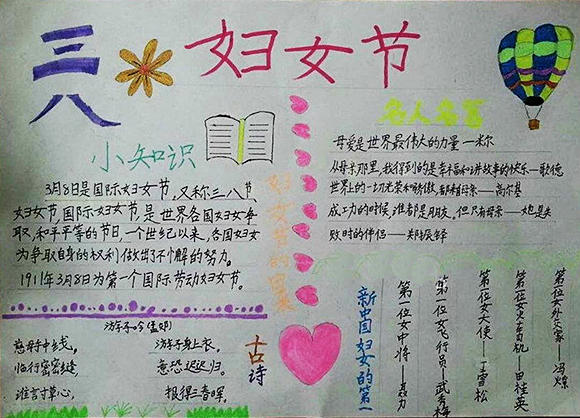 三八
妇女节
小知识
3月8日是国际妇女节,又称三八节、
妇女节,国际妇女节,是世界各国妇女争
取,和平平等的节日,一个世纪以来,各国妇女
为争取自身的权利做出了不懈的努力。
1911年3月8日为第一个国际劳动妇女节。
名人名言
母爱是世界最伟大的力量—米尔
从母亲那里,我得到的是幸福和讲故事的快乐—歌德
世界上的一切光荣和骄傲,都来自母亲——高尔基
成功的时候,谁都是朋友,但只有母亲——她是失
败时的伴侣——郑振铎
妇女节的由来
古诗
游子吟
慈母手中线,
游子身上衣,
临行密密缝,
意恐迟迟归。
谁言寸草心,
报得三春晖。
新中国妇女的第一
第一位女中将—聂力
第一位女飞行员—武秀梅
第一位女大使—王雪松
第一位女火车司机—田桂英
第一位女外交家—冯嫽